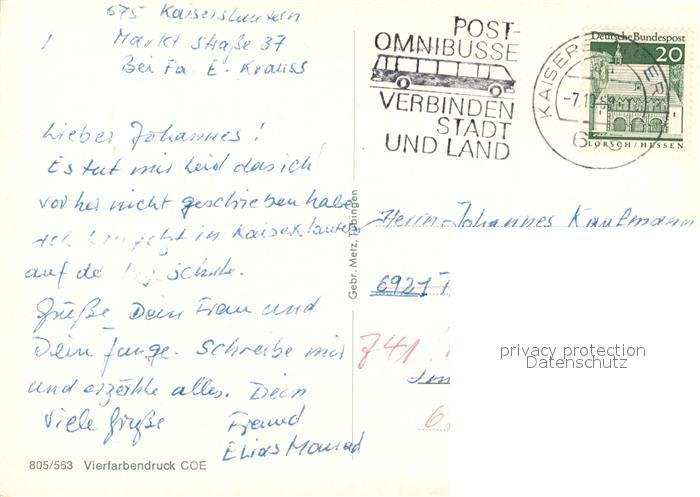 675 Kaiserslautern
Markt straße 37
Bei Fa. E. Krauss
Lieber Johannes!
Es tut mir leid das ich
vorher nicht geschrieben habe
jetzt in Kaiserslautern
auf de Schule.
Grüße Dein Frau und
Dein Junge. Schreibe mir
und erzähle alles. Dein
Viele Grüße Freund
Elias Mourad
805/563 Vierfarbendruck COE
Gebr. Metz, Tübingen
POST-
OMNIBUSSE
VERBINDEN
STADT
UND LAND
KAISERSLAUTERN
-7.10.
Deutsche Bundespost
20
LORSCH/HESSEN
Herrn Johannes Kaufmann
6921
741
privacy protection
Datenschutz